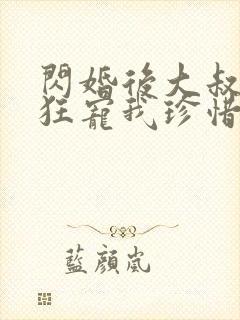 閃婚後大叔
狂寵我珍惜
藍顏嵐